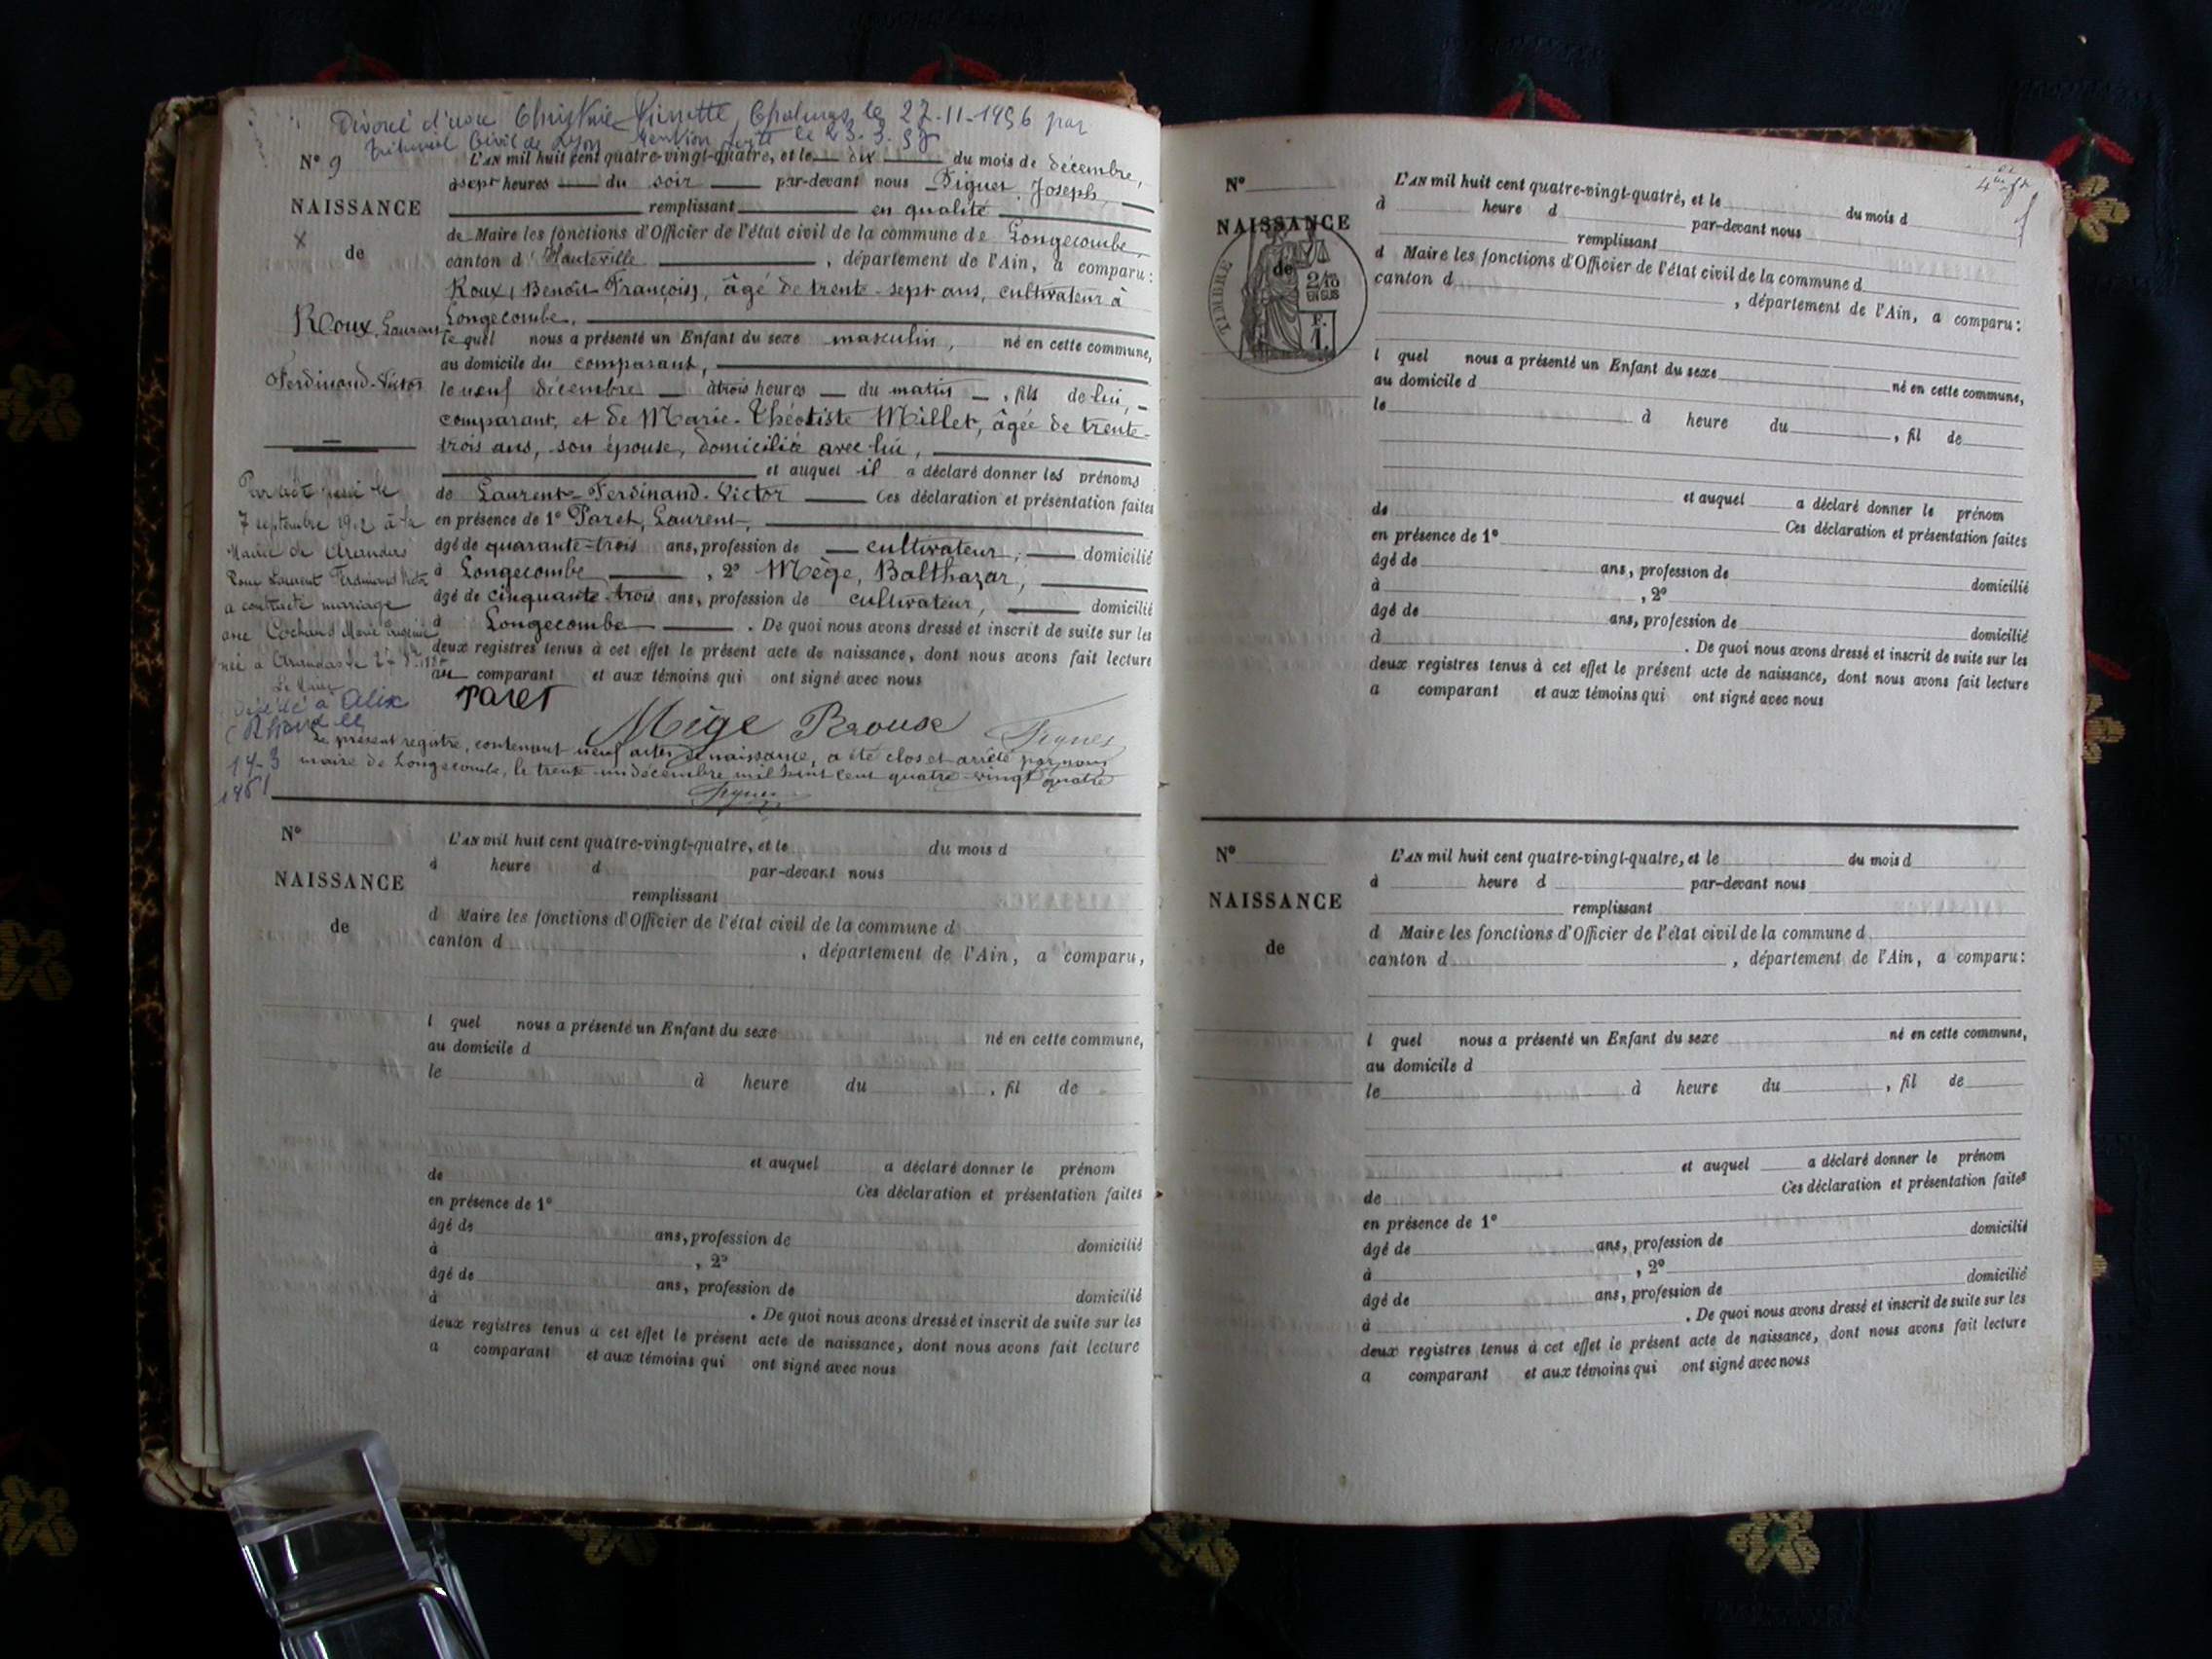 Divorcé d'une le 27-11-1956 par
tribunal Civil de Lyon mention le 23.3.57
N° 9
NAISSANCE
de
Roux, Laurent
Ferdinand-Victor
L'AN mil huit cent quatre-vingt-quatre, et le dix du mois de décembre,
à sept heures du soir par-devant nous Piguet Joseph,
remplissant en qualité
de Maire les fonctions d'Officier de l'état civil de la commune de Longecombe,
canton d'Hauteville, département de l'Ain, a comparu:
Roux, Benoît François, âgé de trente-sept ans, cultivateur à
Longecombe,
lequel nous a présenté un Enfant du sexe masculin, né en cette commune,
au domicile du comparant,
le neuf décembre à trois heures du matin, fils de lui,
comparant, et de Marie-Théotiste Millet, âgée de trente-
trois ans, son épouse, domiciliée avec lui,
et auquel il a déclaré donner les prénoms
de Laurent-Ferdinand-Victor Ces déclaration et présentation faites
en présence de 1° Paret, Laurent,
âgé de quarante-trois ans, profession de cultivateur, domicilié
à Longecombe, 2° Mège, Balthazar,
âgé de cinquante-trois ans, profession de cultivateur, domicilié
à Longecombe. De quoi nous avons dressé et inscrit de suite sur les
deux registres tenus à cet effet le présent acte de naissance, dont nous avons fait lecture
au comparant et aux témoins qui ont signé avec nous
7 septembre 1912 à la
Mairie de Arandas
Roux Laurent Ferdinand Victor
a contracté mariage
avec Cochand Marie Eugénie
née à Arandas le 27
Le Maire
Décédé à Alix
(Rhône) le
14-3
1961
Paret
Mège Rroux
Le présent registre, contenant neuf actes de naissance, a été clos et arrêté par nous
maire de Longecombe, le trente-un décembre mil huit cent quatre-vingt quatre
N°
NAISSANCE
de
L'AN mil huit cent quatre-vingt-quatre, et le du mois d
à heure d par-devant nous
remplissant
d Maire les fonctions d'Officier de l'état civil de la commune d
canton d , département de l'Ain, a comparu,
l quel nous a présenté un Enfant du sexe né en cette commune,
au domicile d
le à heure du , fil de
et auquel a déclaré donner le prénom
de Ces déclaration et présentation faites
en présence de 1°
âgé de ans, profession de domicilié
à , 2°
âgé de ans, profession de domicilié
à . De quoi nous avons dressé et inscrit de suite sur les
deux registres tenus à cet effet le présent acte de naissance, dont nous avons fait lecture
a comparant et aux témoins qui ont signé avec nous
N°
NAISSANCE
de
TIMBRE
2/10
EN SUS
F.
1.
L'AN mil huit cent quatre-vingt-quatre, et le du mois d
à heure d par-devant nous
remplissant
d Maire les fonctions d'Officier de l'état civil de la commune d
canton d , département de l'Ain, a comparu:
l quel nous a présenté un Enfant du sexe né en cette commune,
au domicile d
le à heure du , fil de
et auquel a déclaré donner le prénom
de Ces déclaration et présentation faites
en présence de 1°
âgé de ans, profession de domicilié
à , 2°
âgé de ans, profession de domicilié
à . De quoi nous avons dressé et inscrit de suite sur les
deux registres tenus à cet effet le présent acte de naissance, dont nous avons fait lecture
a comparant et aux témoins qui ont signé avec nous
N°
NAISSANCE
de
L'AN mil huit cent quatre-vingt-quatre, et le du mois d
à heure d par-devant nous
remplissant
d Maire les fonctions d'Officier de l'état civil de la commune d
canton d , département de l'Ain, a comparu:
l quel nous a présenté un Enfant du sexe né en cette commune,
au domicile d
le à heure du , fil de
et auquel a déclaré donner le prénom
de Ces déclaration et présentation faites
en présence de 1°
âgé de ans, profession de domicilié
à , 2°
âgé de ans, profession de domicilié
à . De quoi nous avons dressé et inscrit de suite sur les
deux registres tenus à cet effet le présent acte de naissance, dont nous avons fait lecture
a comparant et aux témoins qui ont signé avec nous